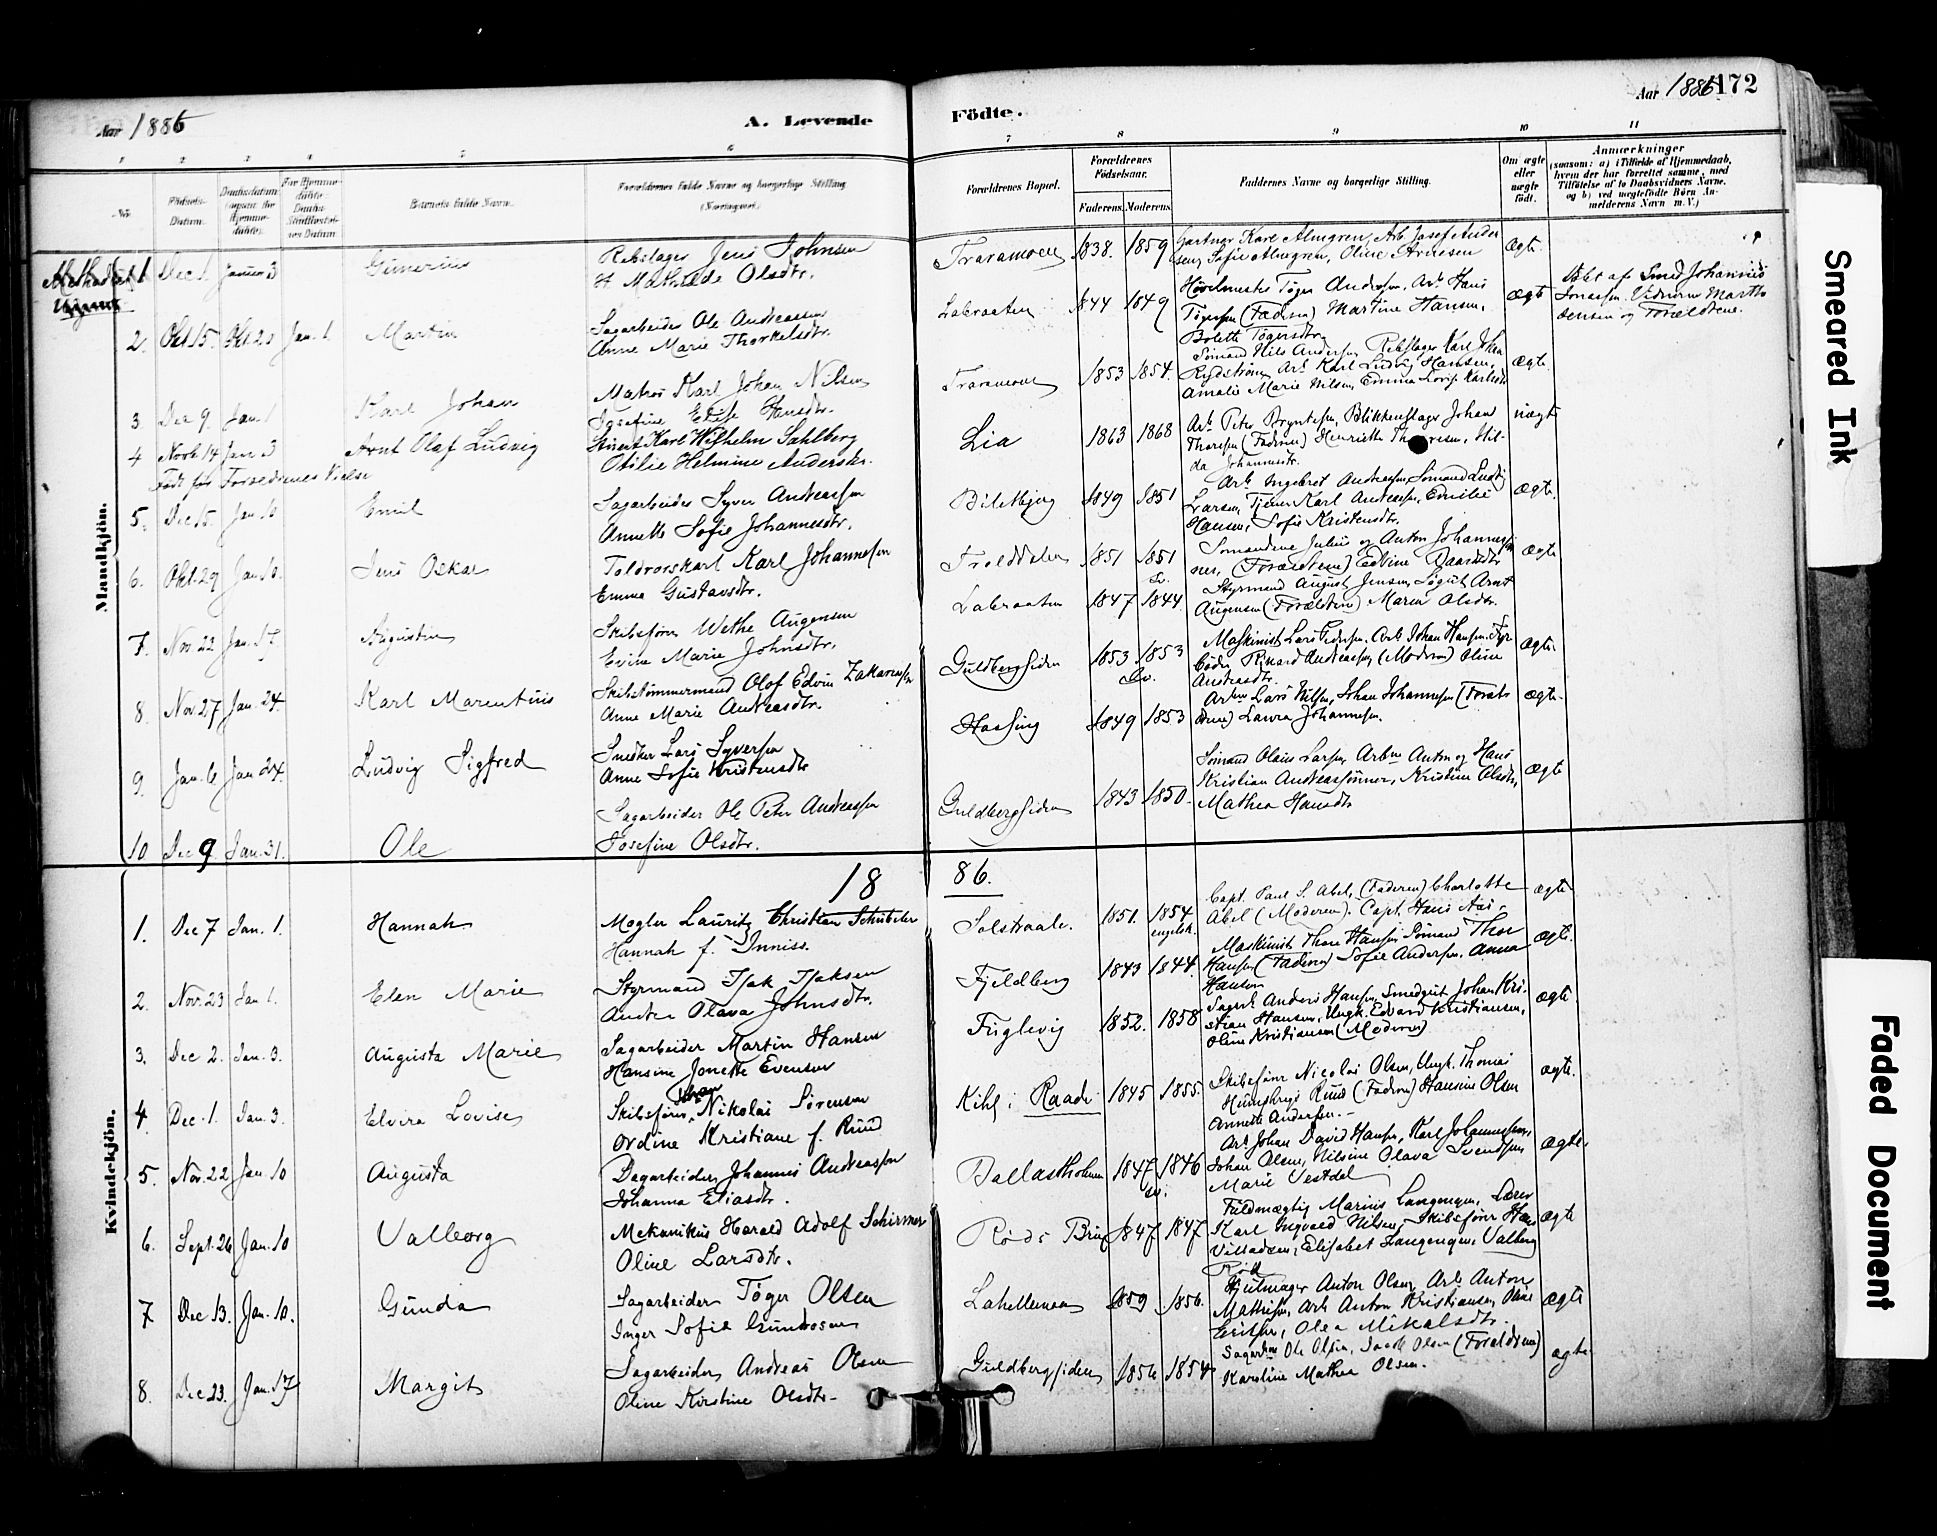 Aar 1886
A. Levende
Födte.
Aar 1886.
172
1 2 3 4 5 6 7 8 9 10 11
No.
Födsels-Datum.
Barnets fulde Navn.
Forældrenes fulde Navne og borgerlige Stilling
(Næringsvei).
Forældrenes Bopæl.
Forældrenes Födselsaar.
Faderens. Moderens.
Faddernes Navne og borgerlige Stilling.
Om ægte eller uægte födt.
Anmærkninger
(saasom: a) i Tilfælde af Hjemmedaab, hvem der har forrettet samme, med Tilföielse af to Daabsvidners Navne. og b) ved uægtefödte Börn Anmelderens Navn m. V.)
Mandkjön.
1 Dec 1. Januar 3 Gunerius
Rebslager Jens Johnsen
H Mathilde Olsdtr.
Traramoen 1838. 1859
Gartner Karl Almgren, Arb. Josef Andersen, Sofie Almgren, Oline Arnesen
ægte
2. Okt. 15. Jan. 1. Martin
Sagarbeider Ole Andreassen
Anne Marie Thorkelsdtr.
1844 1849
Hans
(Fadren) Martine Hansen,
Bolette Tøgersdtr.
ægte
Døbt af Smed Johannes
og Forældrene.
3. Dec 9. Jan. 1 Karl Johan
Matros Karl Johan Nilsen
Josefine Elise Hansdtr.
Traramoen 1853 1854.
Sømand Nils Andersen, Rebslager Karl Johan
Rydstrøm, Arb. Karl Ludvig Hansen,
Amalie Marie Nilsen, Emma Lovise
ægte.
4 Novb. 14 Jan 3 Arnt Olaf Ludvig
Født før Forældrenes Vielse
Karl Wilhelm Sahlberg
Otilie Helmine Andersdtr.
Lia 1863 1868
Arb. Peter Bryntesen, Blikkenslager Johan
Thoresen (Fadren) Henriette Thoresen, Hilda Johannesdtr.
uægte
5. Dec 15. Jan 10 Emil
Sagarbeider Syver Andreassen
Annette Sofie Johannesdtr.
1849 1851
Arb. Ingebret Andreassen, Sømand Ludvig
Larsen, Tjener Karl Andreassen, Emilie
Hansen, Sofie Kristensdtr.
ægte.
6. Okt. 29 Jan 10. Jens Oskar
Toldrorskarl Karl Johannessen
Emma Gustavsdtr.
Trolddalen 1851 1851
Sv.
Sømændene Julius og Anton Johannes
(Forældrene) Edvine
ægte
7. Nov. 22 Jan. 17. Augustin
Skibsfører Wethe Augensen
Evine Marie Johnsdtr.
1847 1844
Styrmand August Jensen, Arnt
Augensen (Forældrene) Maren Olsdtr.
8. Nov. 27 Jan. 24. Karl Marentius
Skibstømmermand Olof Edvin Zakariassen
Anne Marie Andreasdtr.
Guldbergsiden 1853 1853
Sv.
Maskinist Lars Pedersen, Arb. Johan Hansen, Fyrbøder Rikard Andreassen (Moderen) Oline
Andreasdtr.
ægte.
9. Jan. 6 Jan 24. Ludvig Sigfred
Snedker Lars Syversen
Anne Sofie Kristensdtr
1849 1853
Arbm Lars Nilsen, Johan Johannesen (Forældrene) Laura Johannesen.
ægte.
10 Dec 9. Jan. 31. Ole
Sagarbeider Ole Peter Andreassen
Josefine Olsdtr.
Guldbergsiden 1843 1850.
Sømand Olaus Larsen, Arbm Anton og Hans
Kristian Andreassønner, Kristine Olsdtr,
Mathea Hansdtr
ægte
1886.
Kvindekjön.
1. Dec 7 Jan. 1. Hannah
Mægler Lauritz Christian Schübeler
Hannah f. Inniss.
Solstraale. 1851. 1854
engelsk.
Capt. Paul S. Abel, (Faderen) Charlotte
Abel (Moderen). Capt. Hans Aas.
ægte
2. Nov. 23 Jan 1. Elen Marie
Styrmand Isak Isaksen
Andrea Olava Johnsdtr.
Fjeldberg 1843 1844.
Maskinist Thore Hansen, Sømand Thor
Hansen (Fadren) Sofie Andersen, Anna
Hansen
ægte.
3. Dec 2. Jan. 3. Augusta Marie
Sagarbeider Martin Hansen
Hansine Jonette Evensen
Fuglevig 1852. 1858
Sagarb. Anders Hansen, Smedgut Johan Kristian Hansen, Ungk. Edvard Kristiansen,
Oline Kristiansen (Moderen)
ægte
4. Dec. 1. Jan. 3. Elvira Lovise
Skibsfører Nikolai Sørensen
Ordine Kristiane f. Ruud
Kihl i Raade 1845 1855.
Skibsfører Nicolai Olsen, Ungk. Thomas
Humphreys Ruud (Fadren) Hansine Olsen
Annette Andersen.
ægte.
5. Nov. 22 Jan 10 Augusta
Dagarbeider Johannes Andreassen
Johanna Eliasdtr.
Ballastholmen 1847 1846
sv.
Arb Johan David Hansen, Karl Johannessen,
Johan Olsen, Nilsine Olava Svendsen,
Marie Vestdal
ægte.
6. Sept. 26 Jan. 10 Valborg
Mekanikus Harald Adolf Schirmer
Oline Larsdtr.
Røds Brug 1847 1847
Fuldmægtig Marius Langengen, Lærer
Karl Ingvald Nilsen, Skibsfører Hans
Villadsen, Elisabet Langengen, Valborg
Rød
ægte
7 Dec 13. Jan. 10. Gunda
Sagarbeider Tøger Olsen
Inger Sofie Gundrosen
Lahellemoen 1859 1856.
Hjulmager Anton Olsen, Arb Anton
Mathisen, Arb Anton Kristiansen,
Olea Mikalsdtr.
ægte
8. Dec. 23. Jan. 17 Margit
Sagarbeider Andreas Olsen
Oline Kirstine Olsdtr
Guldbergsiden 1856 1854
Sagarbm Ole Olsen, Jacob Olsen (Forældrene)
Karoline Mathea Olsen.
ægte
Smeared Ink
Faded Document